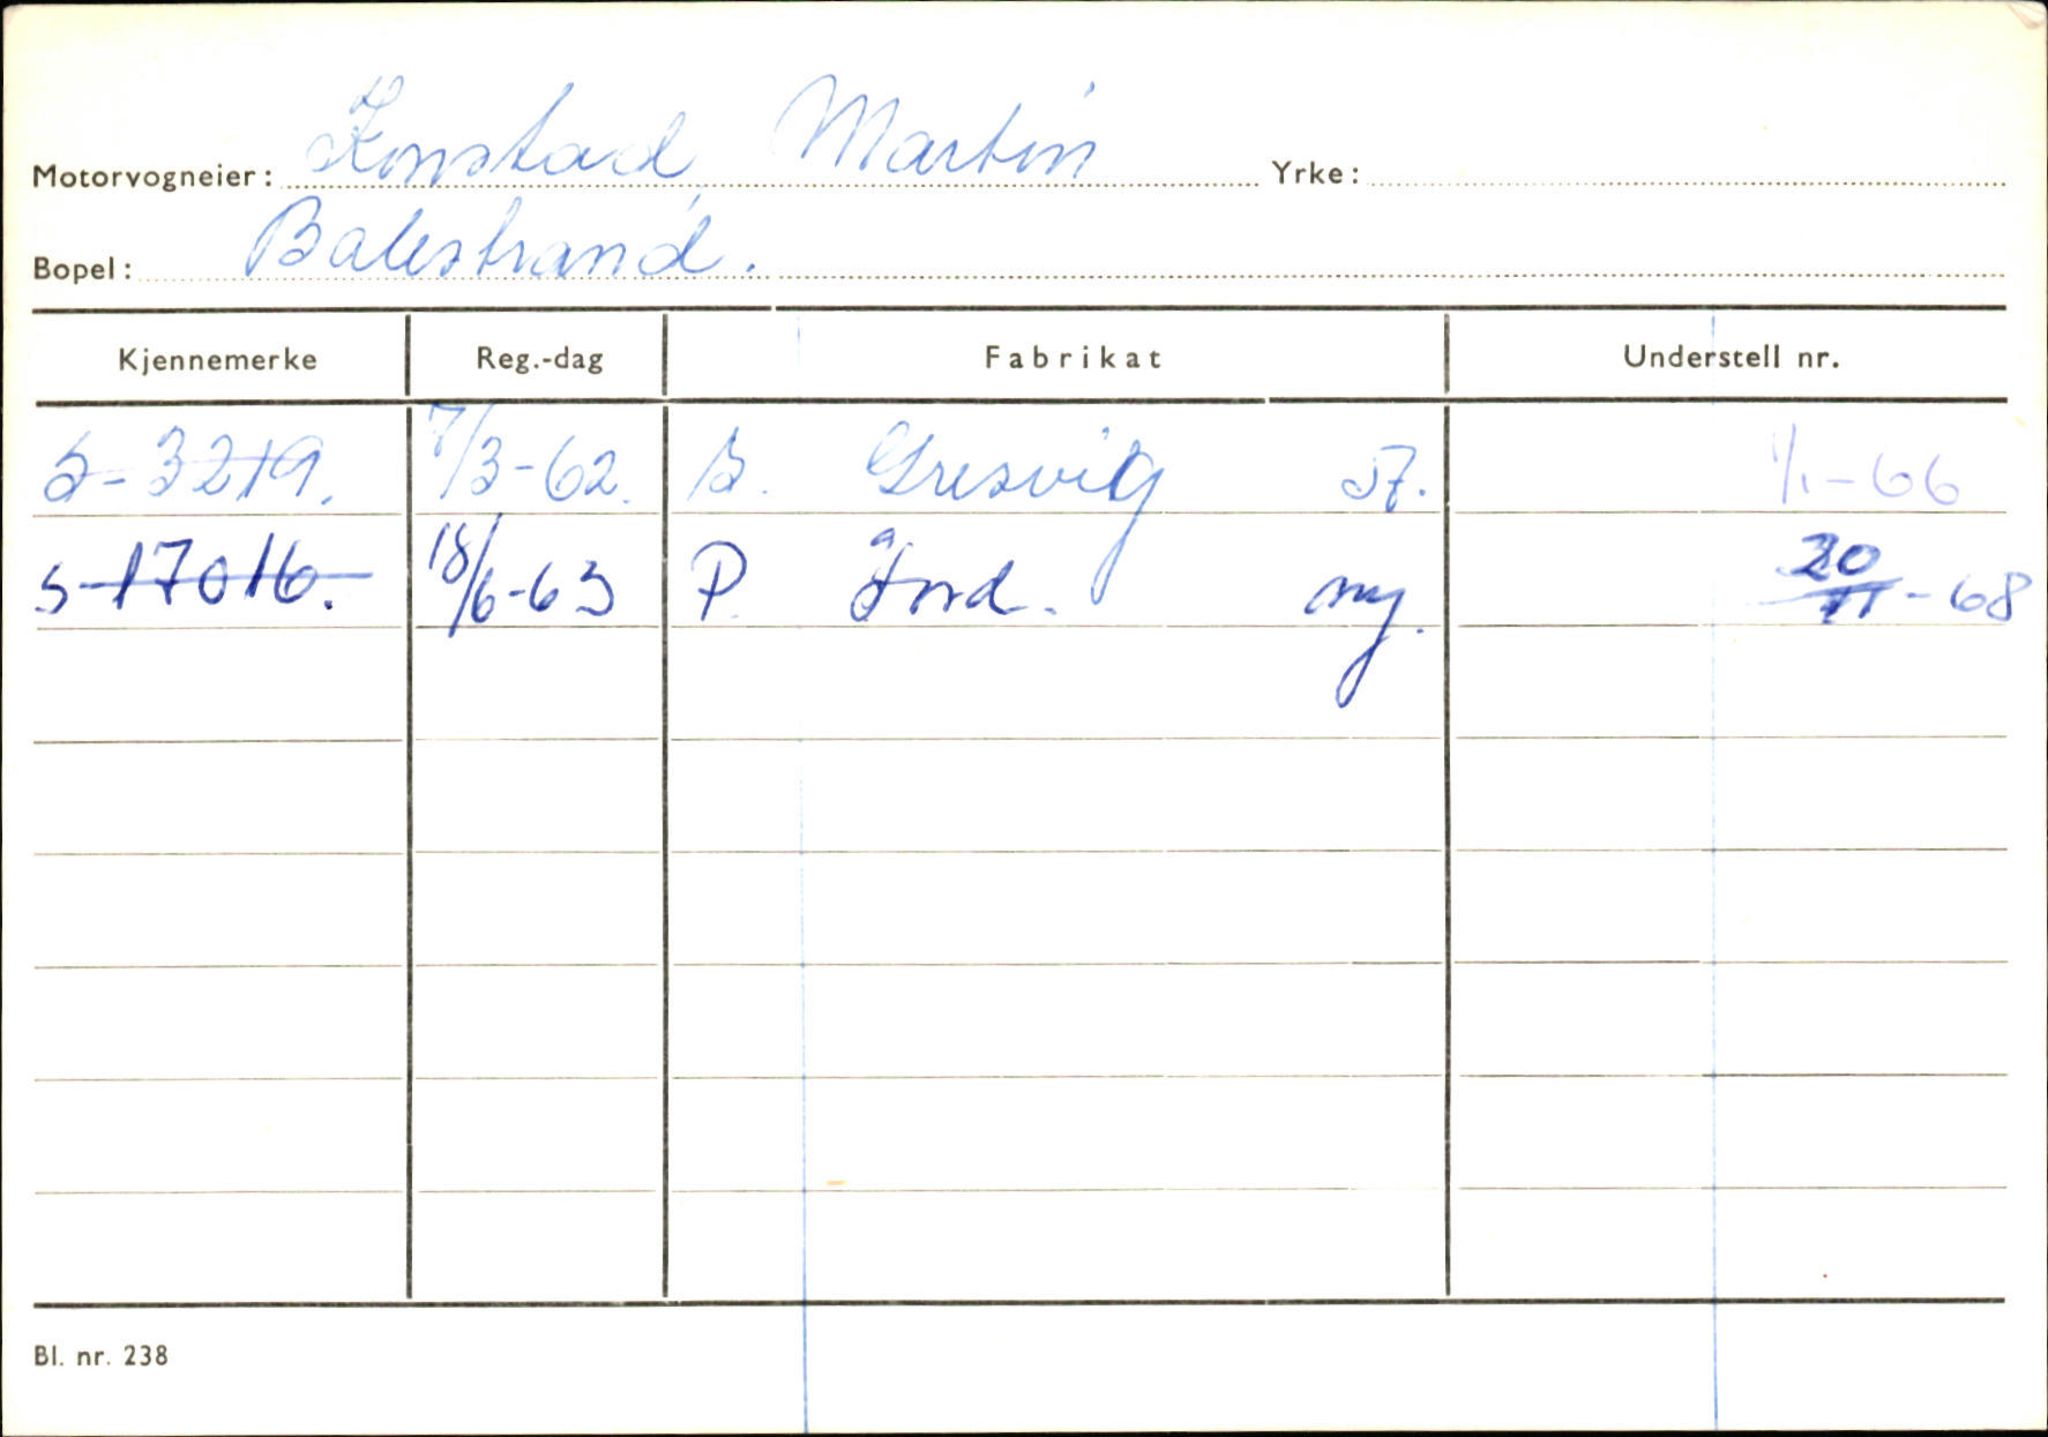 Motorvogneier: Konstad, Martin Yrke:
Bopel: Balestrand.
Kjennemerke Reg.-dag Fabrikat Understell nr.
S-3219. 7/3-62. B. Gresvig 57. 1/1-66
S-17016. 18/6-63 P. Ford. ny. 20/11-68
Bl. nr. 238